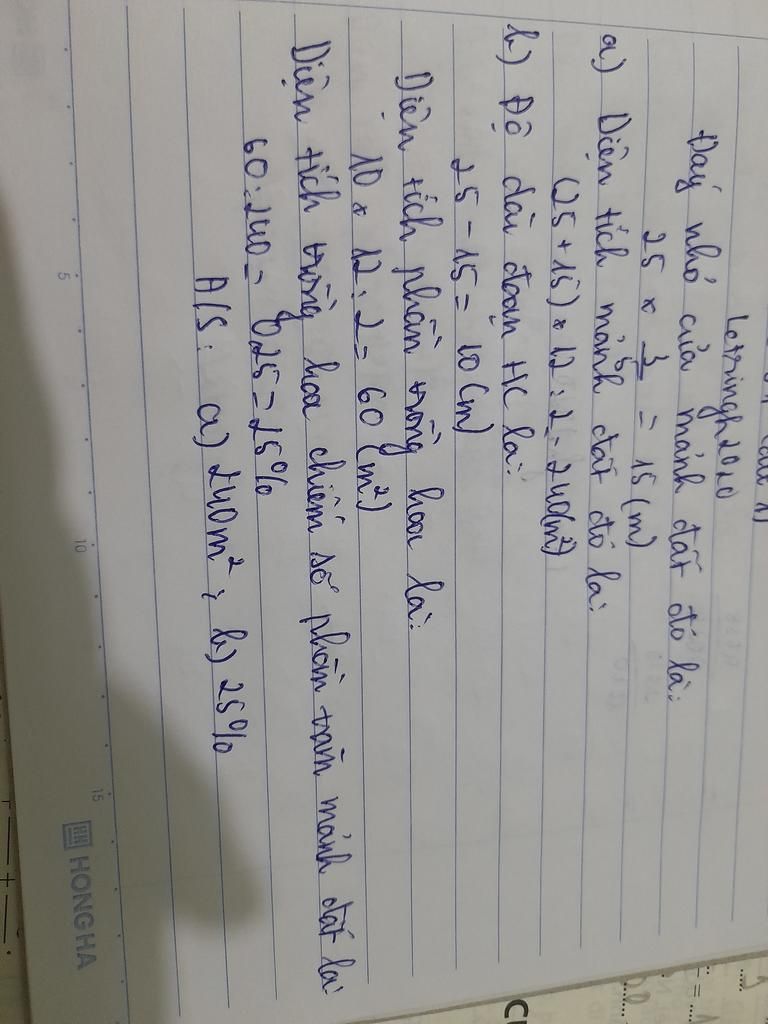 Đáy nhỏ của mảnh đất đó là:
25 × 3/5 = 15 (m)
a) Diện tích mảnh đất đó là:
(25 + 15) × 12 : 2 = 240 (m²)
b) Độ dài đoạn HC là:
25 - 15 = 10 (m)
Diện tích phần trồng hoa là:
10 × 12 : 2 = 60 (m²)
Diện tích trồng hoa chiếm số phần trăm mảnh đất là:
60 : 240 = 0,25 = 25%
Đ/S: a) 240m² ; b) 25%
5
10
15
HH HONG HA